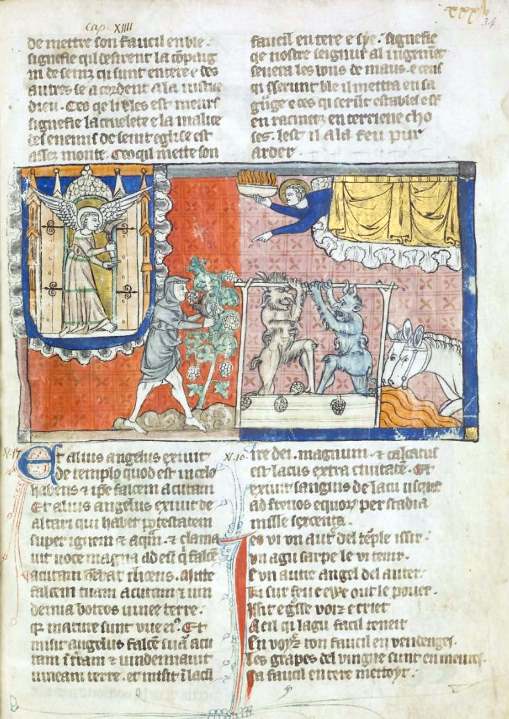 Cap. XIIII
34
de mettre son faucil en ble
signefie qil desirent la cōpaig
nie de seinz qi sunt en tere e des
autres se acordent a la iustise
dieu. Ceo qe li bles est meurs
signefie la cruelete e la malice
des enemis de seint eglise est
assez monte. Ceo qil mette son
faucil en tere e sye. signefie
qe nostre seignur al iugemēt
severa les bons de maus. e ceus
qi serunt ble il mettra en sa
grange e ceus qi serunt estables e
en racinez en terriene cho
ses. iest il a la feu pur
arder.
XI.17
Et alius angelus exiuit
de templo quod est in celo
habens & ipse falcem acutam
Et alius angelus exiuit de
altari qui habet ptestatem
super ignem & aqm. & clama
uit uoce magna ad eū q̄ falcē
acutam dicens. Mitte
falcem tuam acutam & uin
demia botros uinee terre.
qm mature sunt uue eius. Et
misit angelus falcē suā acu
tam i trām & uindemiauit
uineam terre. et misit i lacū
ire dei. magnum & calcatus
est lacus extra ciuitatē. Et
exiuit sanguis de lacu usque
ad frenos equor per stadia
mille sexcenta.
Jeo vi un autre del tēple issir
Un agu sarpe li vi tenir.
E un autre angel del auter
Ki sur feu e ewe out le pouer.
Issit e grosse voiz criet
A cil qi lagu faucil teneit
En voyez ton faucil en vendenges.
Les grapes del vingne sunt en meures
Sa faucil en tere mettoyt.